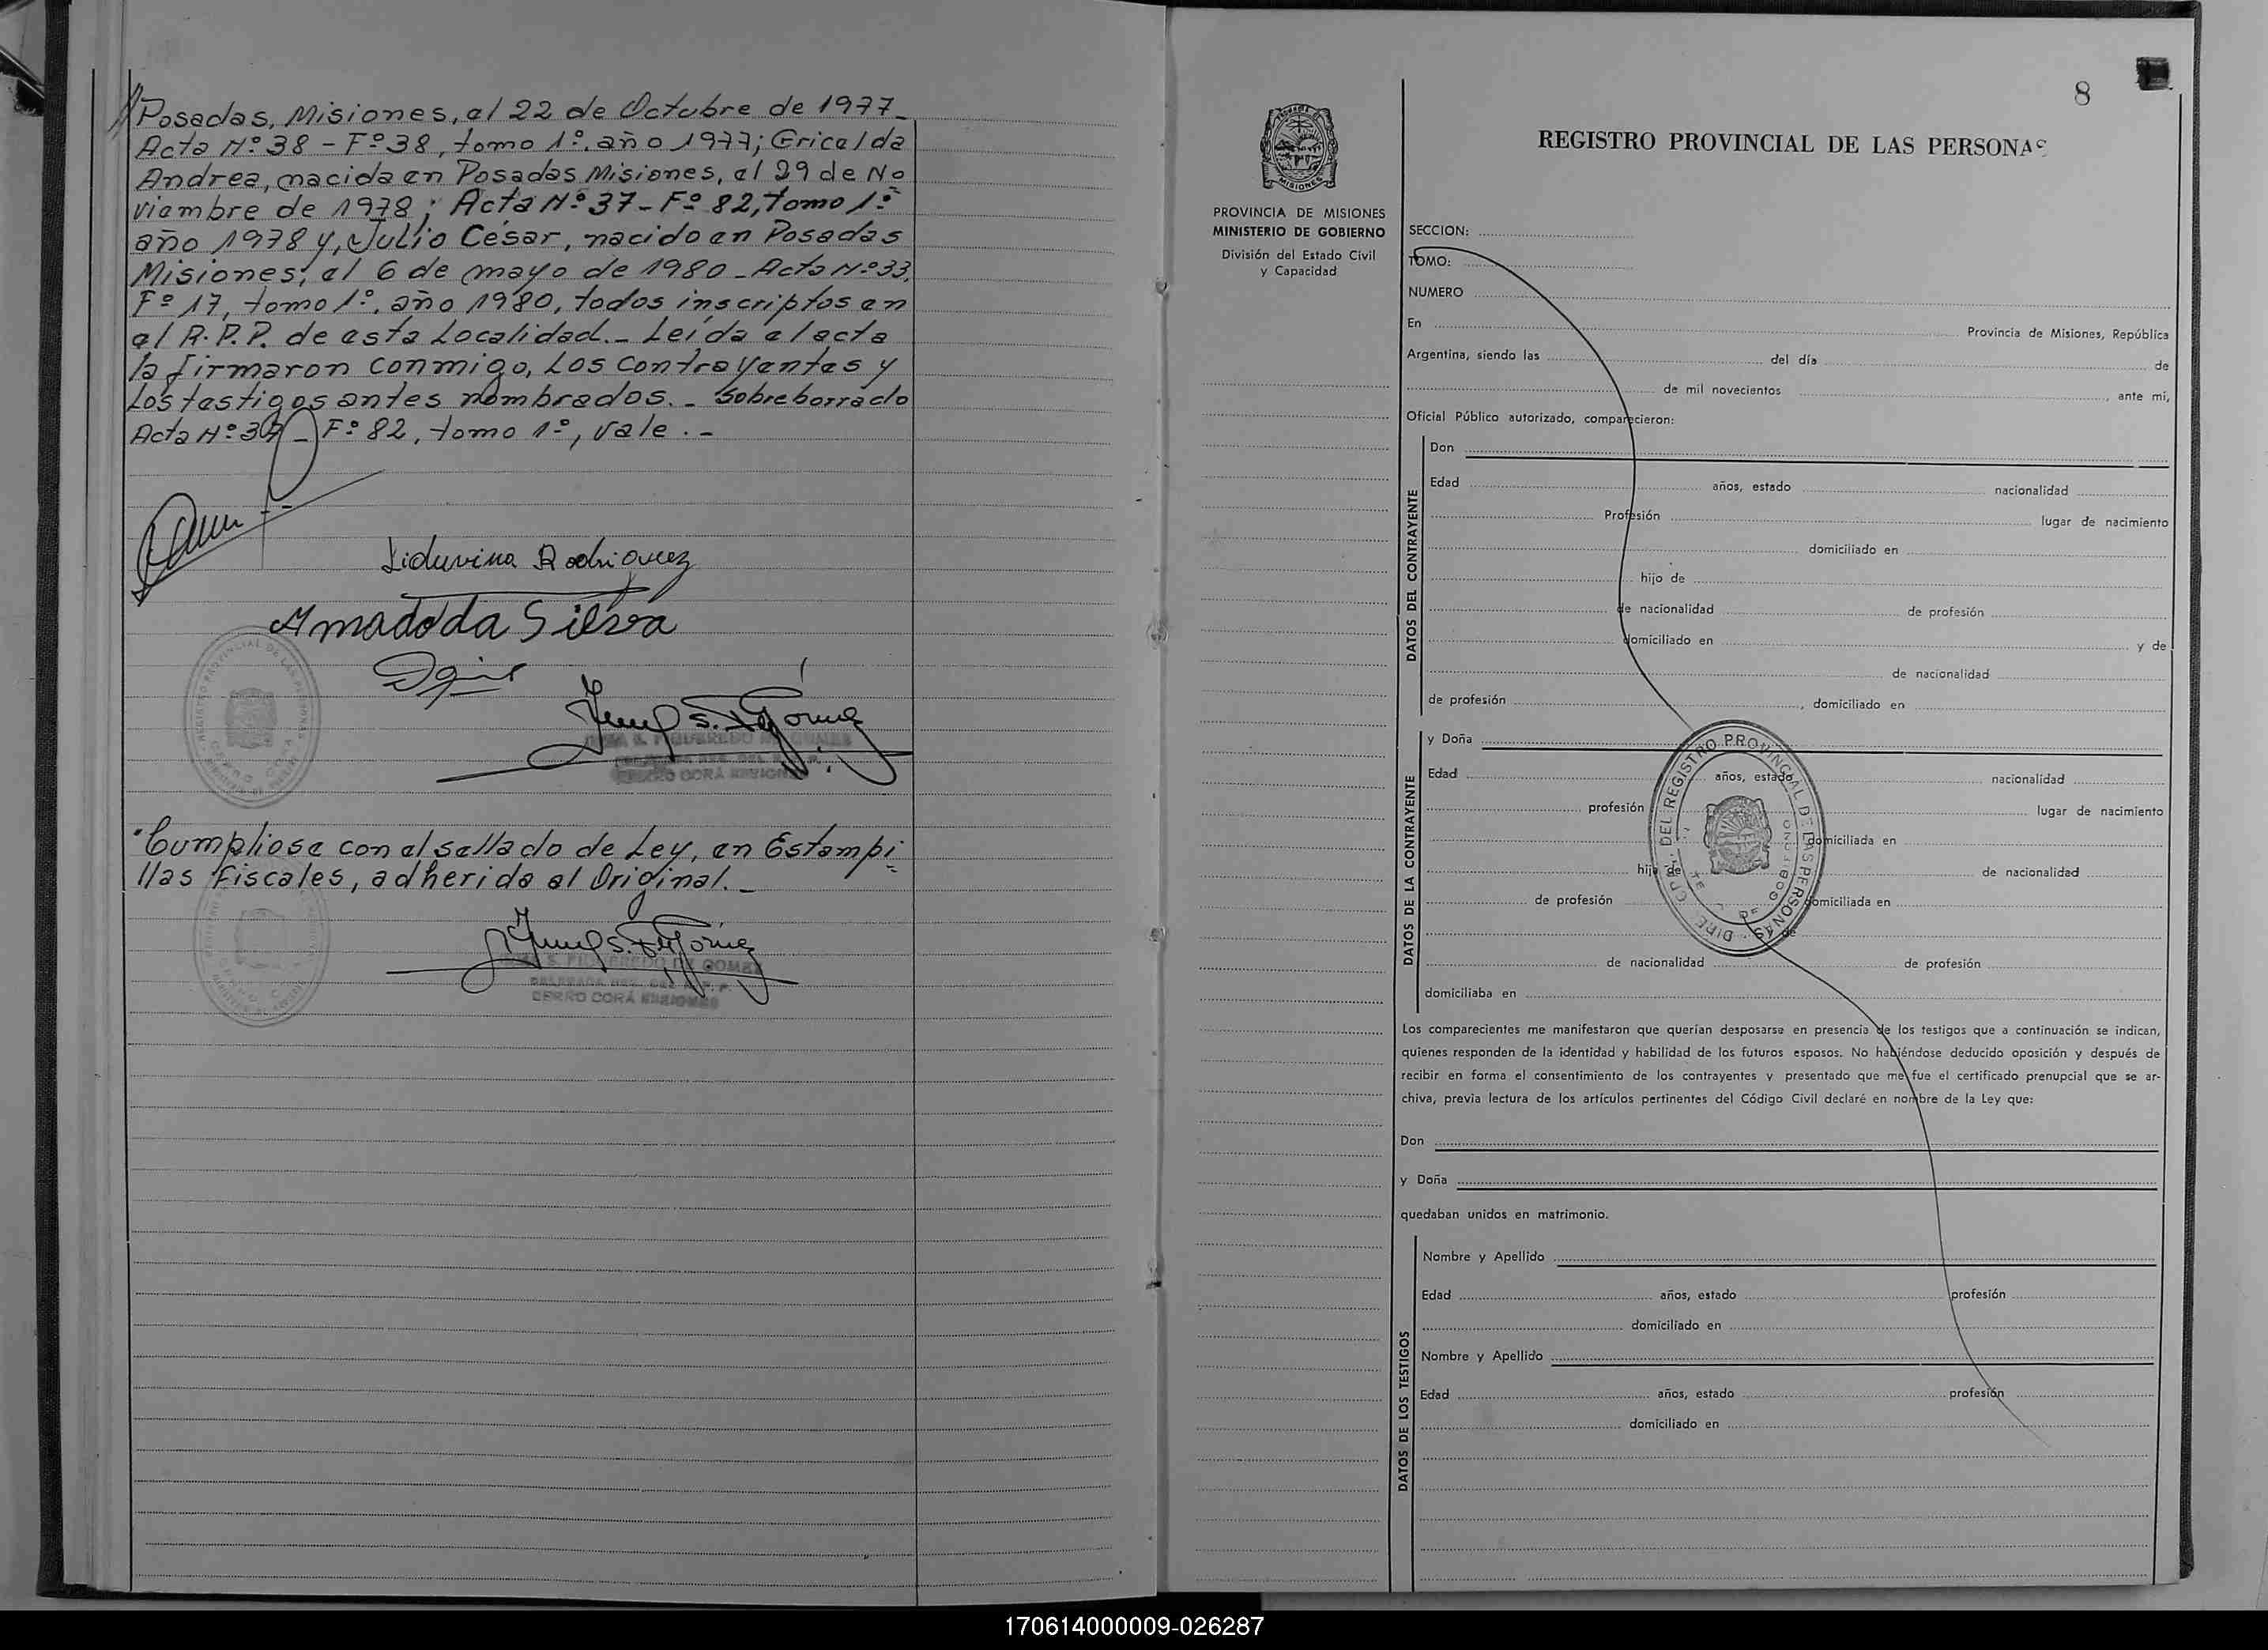 Posadas, Misiones, el 22 de Octubre de 1977_
Acta Nº 38 - Fº 38, tomo 1º, año 1977; Gricelda
Andrea, nacida en Posadas Misiones, el 29 de No
viembre de 1978; Acta Nº 37 - Fº 82, tomo 1º
año 1978 y, Julio César, nacido en Posadas
Misiones, el 6 de mayo de 1980 - Acta Nº 33,
Fº 17, tomo 1º, año 1980, todos inscriptos en
el R.P.P. de esta Localidad._ Leída el acta
la firmaron conmigo, los contrayentes y
los testigos antes nombrados._ Sobreborrado
Acta Nº 37 - Fº 82, tomo 1º, vale._
Liduvina Rodriguez
Amado da Silva
REGISTRO PROVINCIAL DE LAS PERSONAS
CERRO CORÁ MISIONES
Cumpliose con el sellado de Ley, en Estampi
llas Fiscales, adherido al Original._
S. FIGUEREDO DE GOMEZ
CERRO CORÁ MISIONES
8
MISIONES
PROVINCIA DE MISIONES
MINISTERIO DE GOBIERNO
División del Estado Civil
y Capacidad
REGISTRO PROVINCIAL DE LAS PERSONAS
SECCION:
TOMO:
NUMERO
En Provincia de Misiones, República
Argentina, siendo las del día de
de mil novecientos , ante mí,
Oficial Público autorizado, comparecieron:
DATOS DEL CONTRAYENTE
Don
Edad años, estado nacionalidad
Profesión lugar de nacimiento
domiciliado en
hijo de
de nacionalidad de profesión
domiciliado en y de
de nacionalidad
de profesión , domiciliado en
DATOS DE LA CONTRAYENTE
y Doña
Edad años, estado nacionalidad
profesión lugar de nacimiento
domiciliada en
hija de de nacionalidad
de profesión domiciliada en
de
de nacionalidad de profesión
domiciliaba en
DEL REGISTRO PROVINCIAL DE LAS PERSONAS
Los comparecientes me manifestaron que querían desposarse en presencia de los testigos que a continuación se indican,
quienes responden de la identidad y habilidad de los futuros esposos. No habiéndose deducido oposición y después de
recibir en forma el consentimiento de los contrayentes y presentado que me fue el certificado prenupcial que se ar-
chiva, previa lectura de los artículos pertinentes del Código Civil declaré en nombre de la Ley que:
Don
y Doña
quedaban unidos en matrimonio.
DATOS DE LOS TESTIGOS
Nombre y Apellido
Edad años, estado profesión
domiciliado en
Nombre y Apellido
Edad años, estado profesión
domiciliado en
170614000009-026287